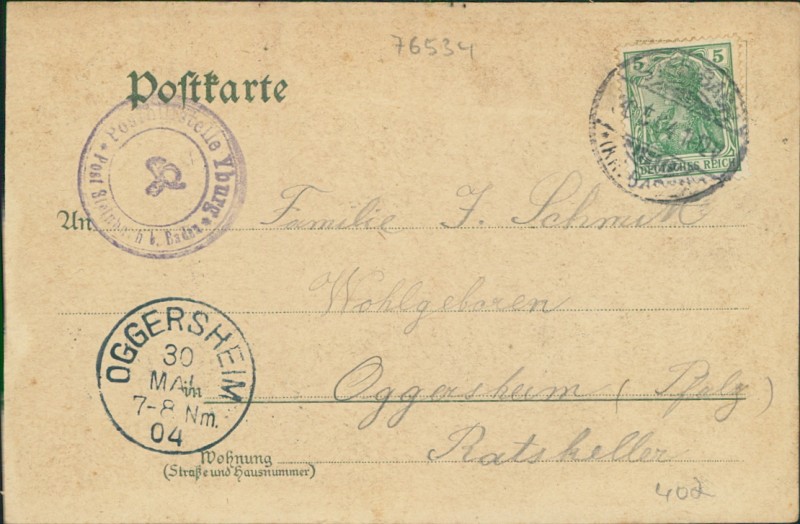 76534
Postkarte
5 5
DEUTSCHES REICH
Posthilfstelle Yburg
* Post Steinbach b. Baden *
An
Familie J. Schmitt
Wohlgeboren
OGGERSHEIM
30
MAI
7-8 Nm.
04
in
Oggersheim (Pfalz)
Ratskeller
Wohnung
(Straße und Hausnummer)